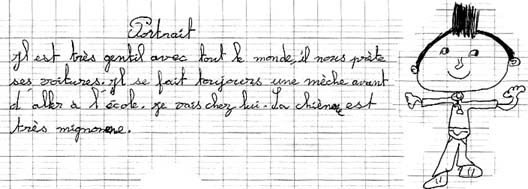 Portrait
Il est très gentil avec tout le monde, il nous prête
ses voitures. Il se fait toujours une mèche avant
d'aller à l'école. Je vais chez lui. Sa chienne est
très mignonne.